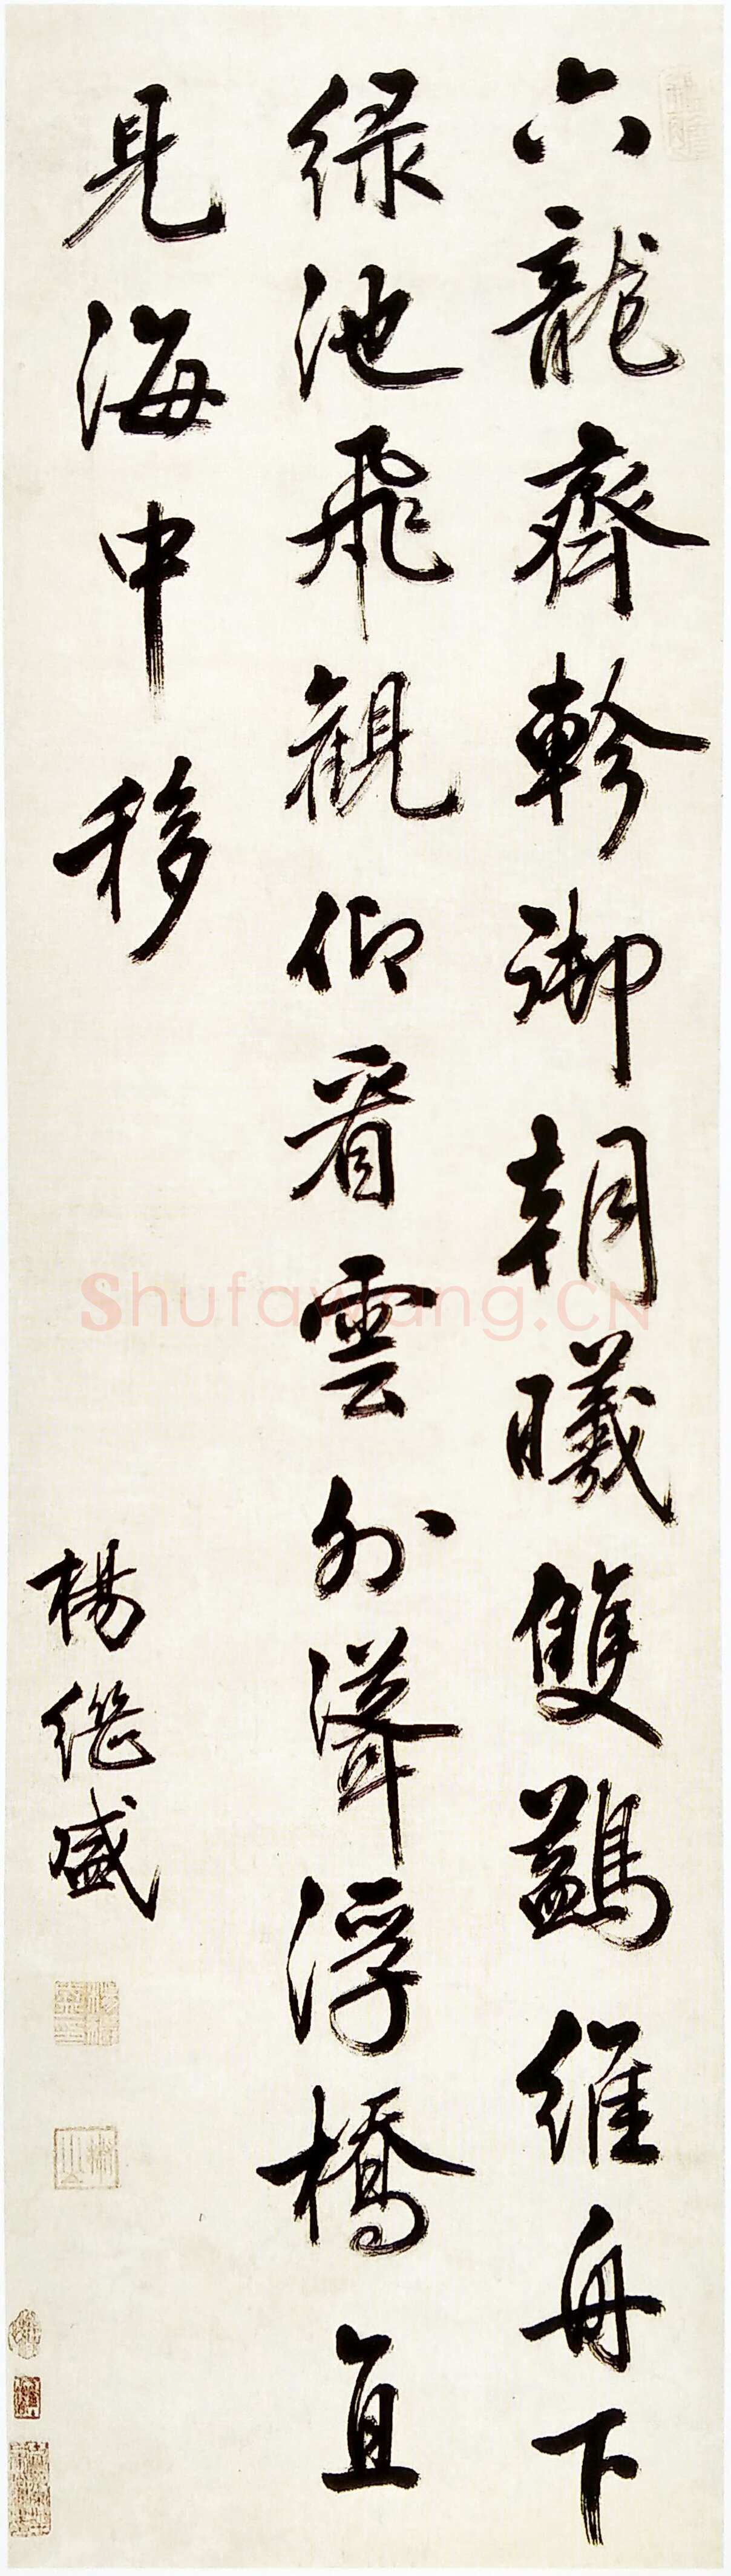 六龍齊軫御朝曦雙鷁維舟下
绿池飛觀仰看雲外聳浮橋直
見海中移
楊继盛
Shufawang.CN